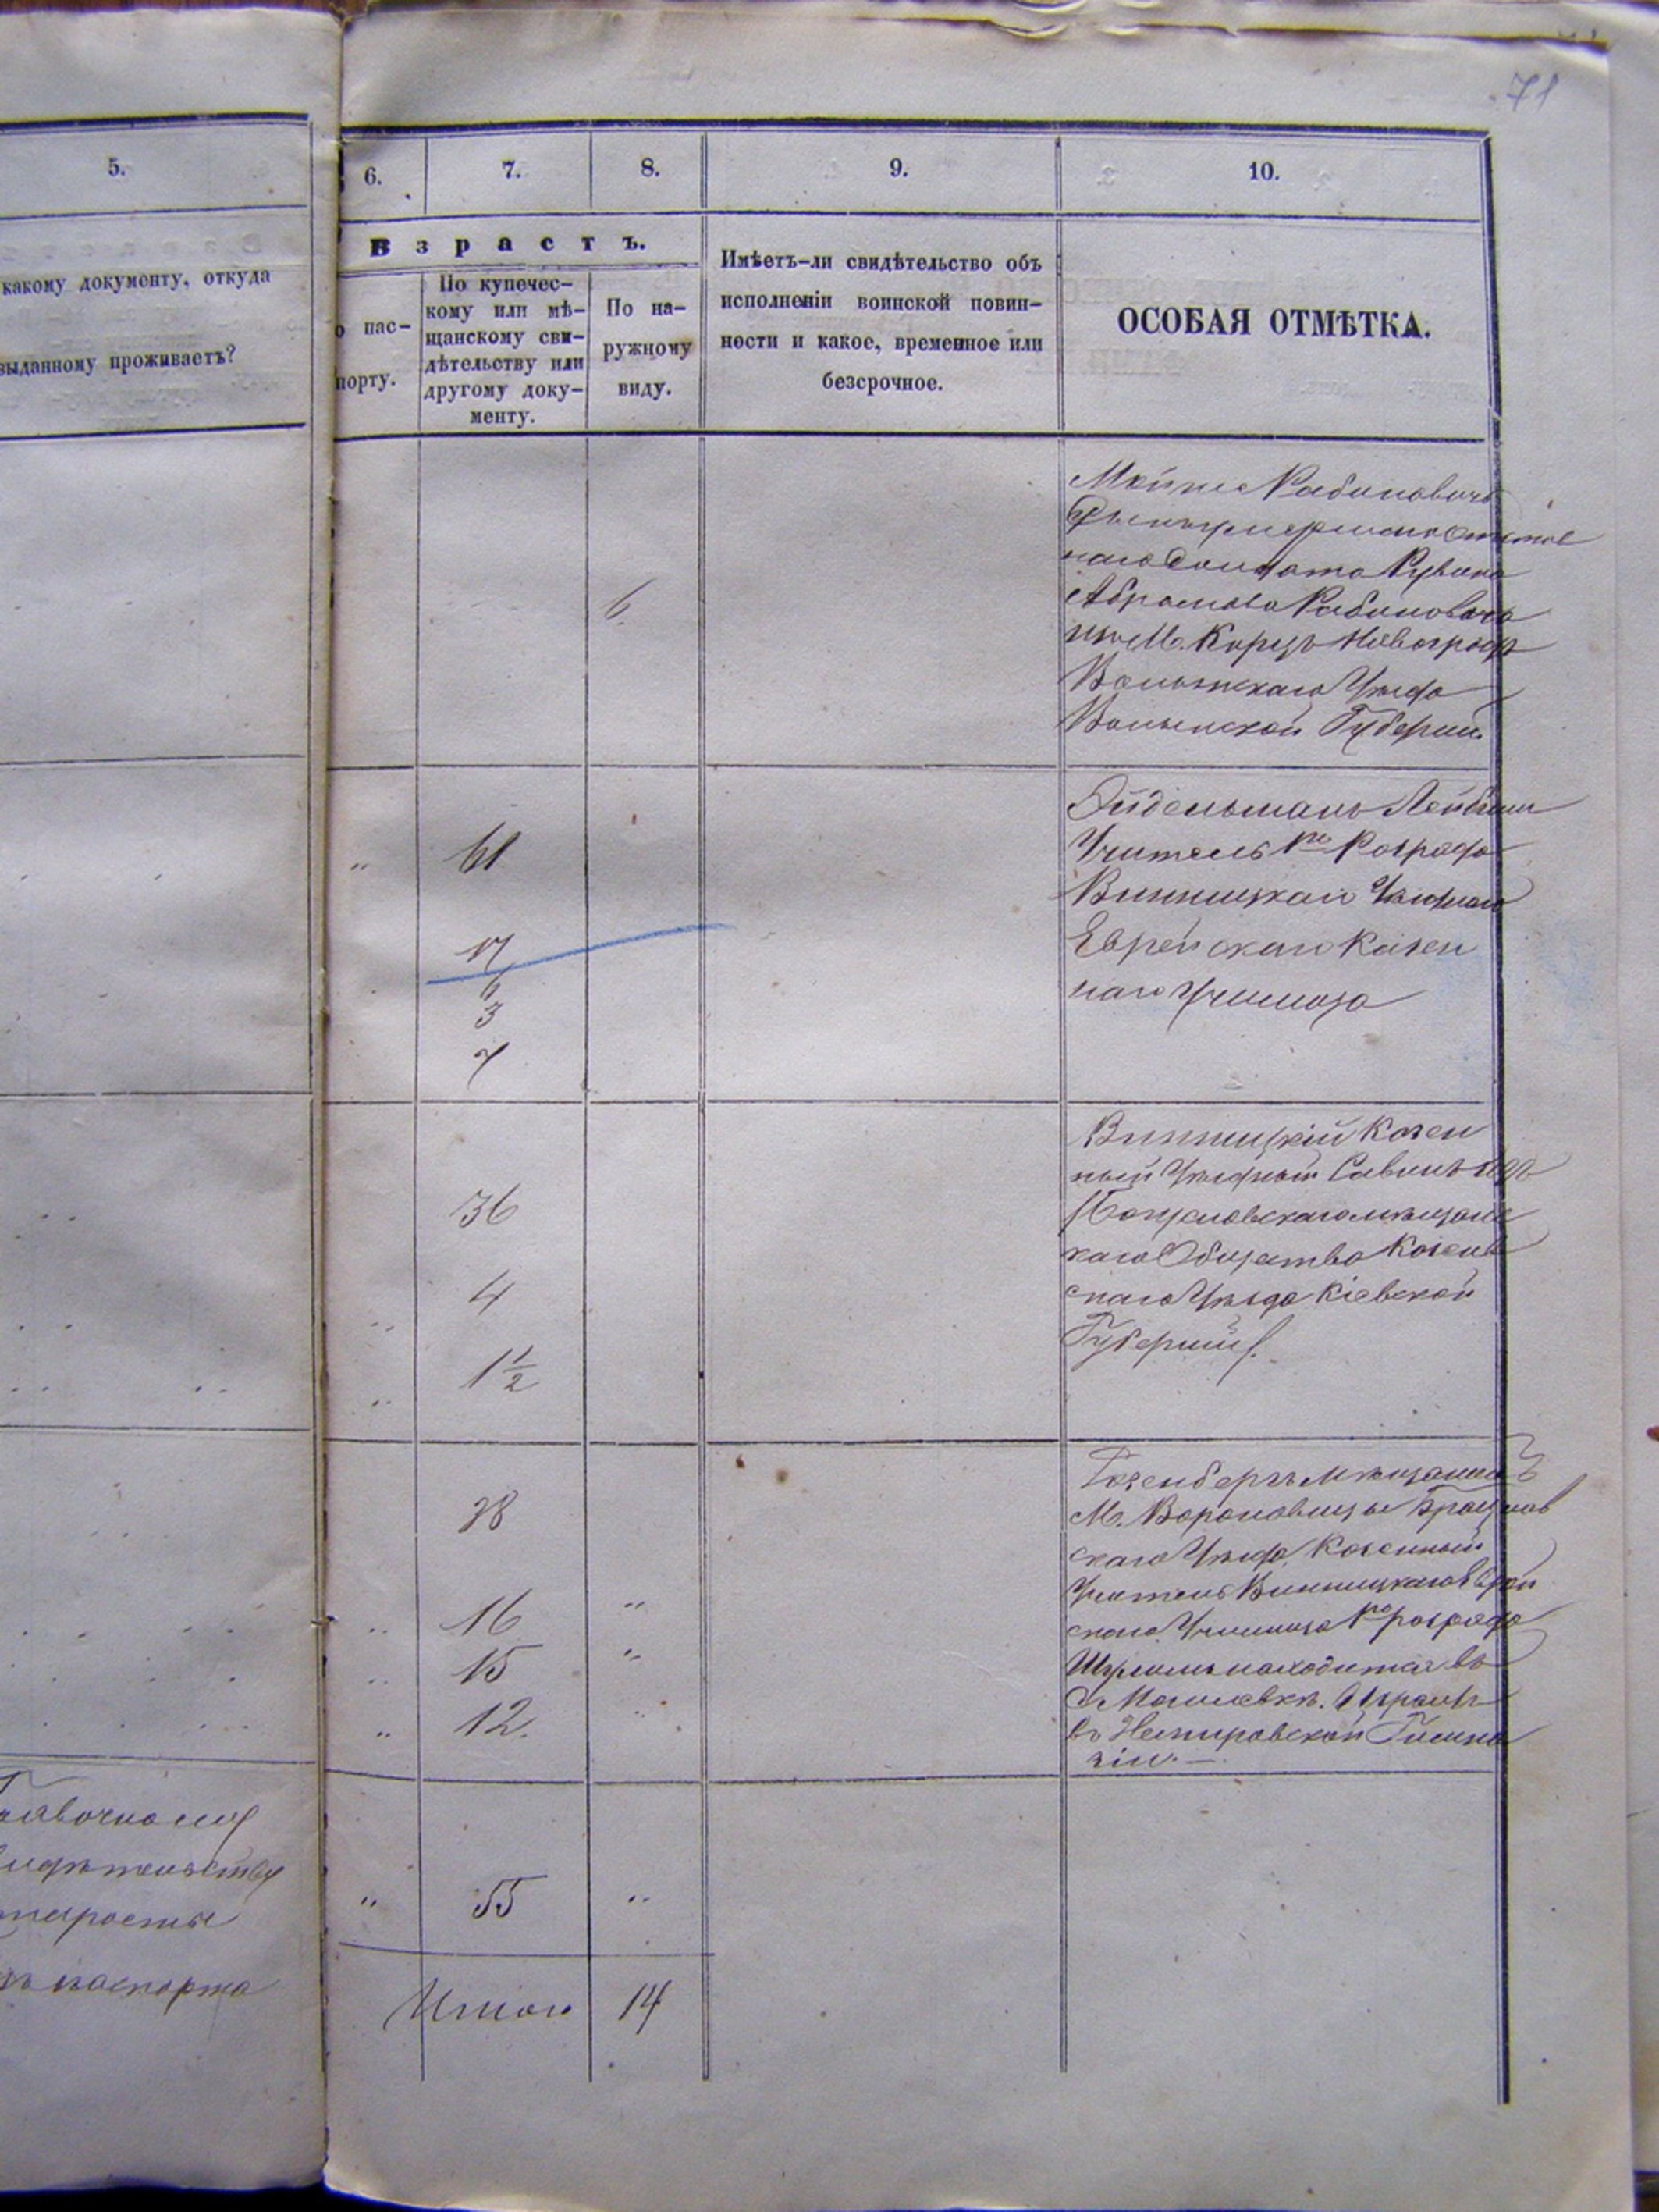 71
5.
6.
7.
8.
9.
10.
Возрастъ.
какому документу, откуда
выданному проживаетъ?
о пас-
порту.
По купечес-
кому или мѣ-
щанскому сви-
дѣтельству или
другому доку-
менту.
По на-
ружному
виду.
Имѣетъ-ли свидѣтельство объ
исполненіи воинской повин-
ности и какое, временное или
безсрочное.
ОСОБАЯ ОТМѢТКА.
6
Рабиновичъ
наго Солдата Рувина
Абрамова Рабиновича
изъ М. Корцъ Новоградъ
Волынскаго Уѣзда
Волынской Губерніи.
61
17
6
3
7
Эйдельманъ Лейбиш
Учитель 1го Розряда
Винницкаго Уѣзднаго
Еврейскаго Казен
наго Училища
36
4
1 1/2
Винницкій Казен
ный Уѣздный Равинъ изъ
мѣщанс
каго Общества
скаго Уѣзда Кіевской
Губерніи
38
16
15
12.
Розенбергъ Мѣщанинъ
М. Вороновицы Брацлав
скаго Уѣзда, Казенный
Учитель Винницкаго Еврей
скаго Училища 1го розряда
находится въ
въ Немировской Гимна
зіи. —
явочному
видѣтельству
таросты
паспорта
55
Итого
14